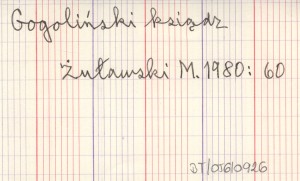 Gogoliński ksiądz
Żuławski M. 1980: 60
JT/OJ6/0926